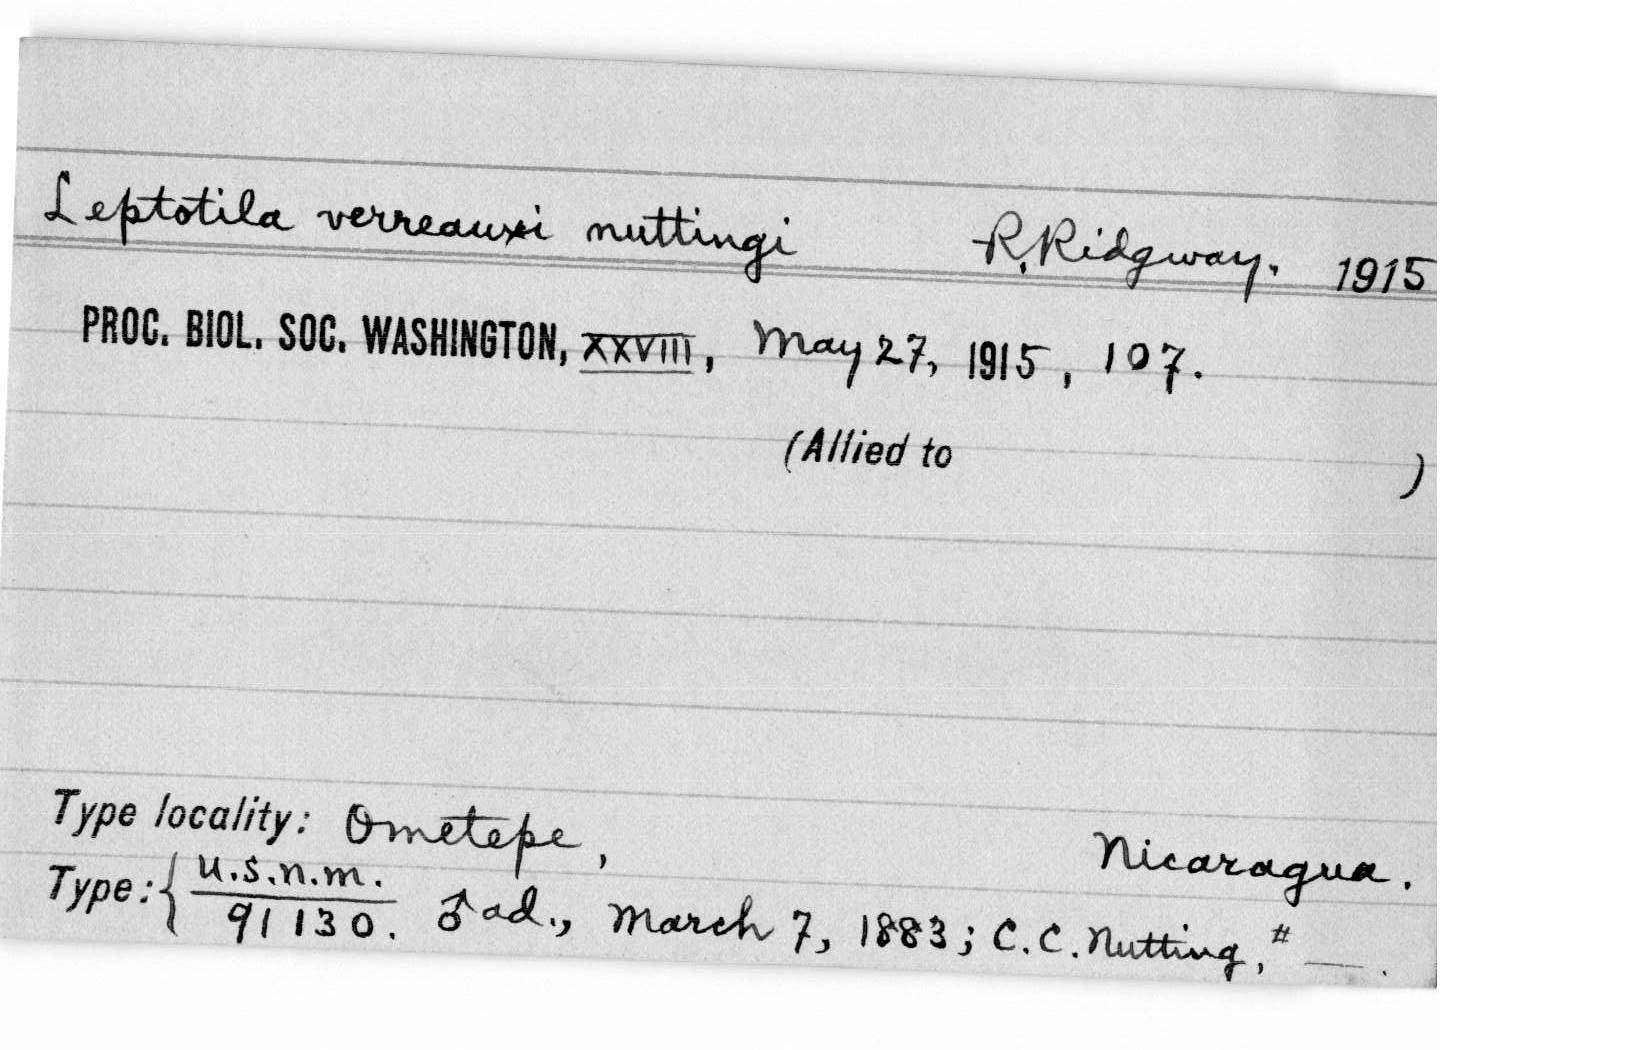 Leptotila verreauxi nuttingi R. Ridgway. 1915
PROC. BIOL. SOC. WASHINGTON, XXVIII, May 27, 1915, 107.
(Allied to )
Type locality: Ometepe, Nicaragua.
Type: { U.S.N.M.
91130. ♂ ad., March 7, 1883; C.C. Nutting, # —.